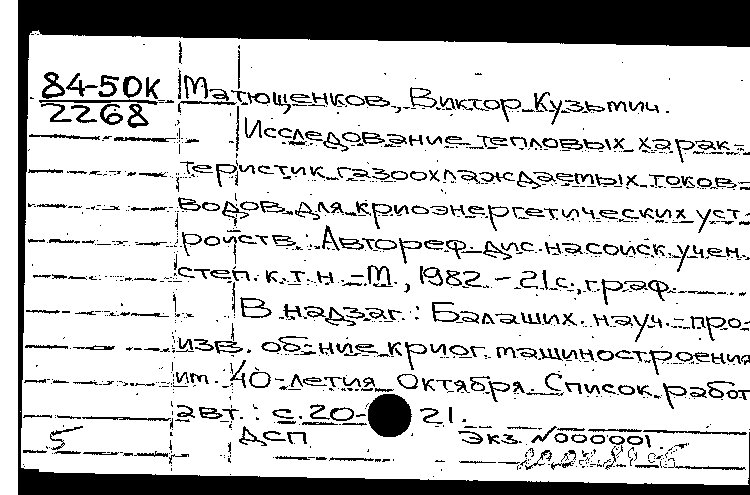 84-50К Матющенков, Виктор Кузьмич.
2268
Исследование тепловых харак-
теристик газоохлаждаемых токов-
водов для криоэнергетических уст-
ройств.: Автореф. дис. на соиск. учен.
степ. к.т.н. -М., 1982 - 21с., граф.
В надзаг.: Балаших. науч.-про-
изв. об-ние криог. машиностроения
им. 40-летия Октября. Список работ
авт.: с. 20- 21.
5 ДСП Экз. №000001